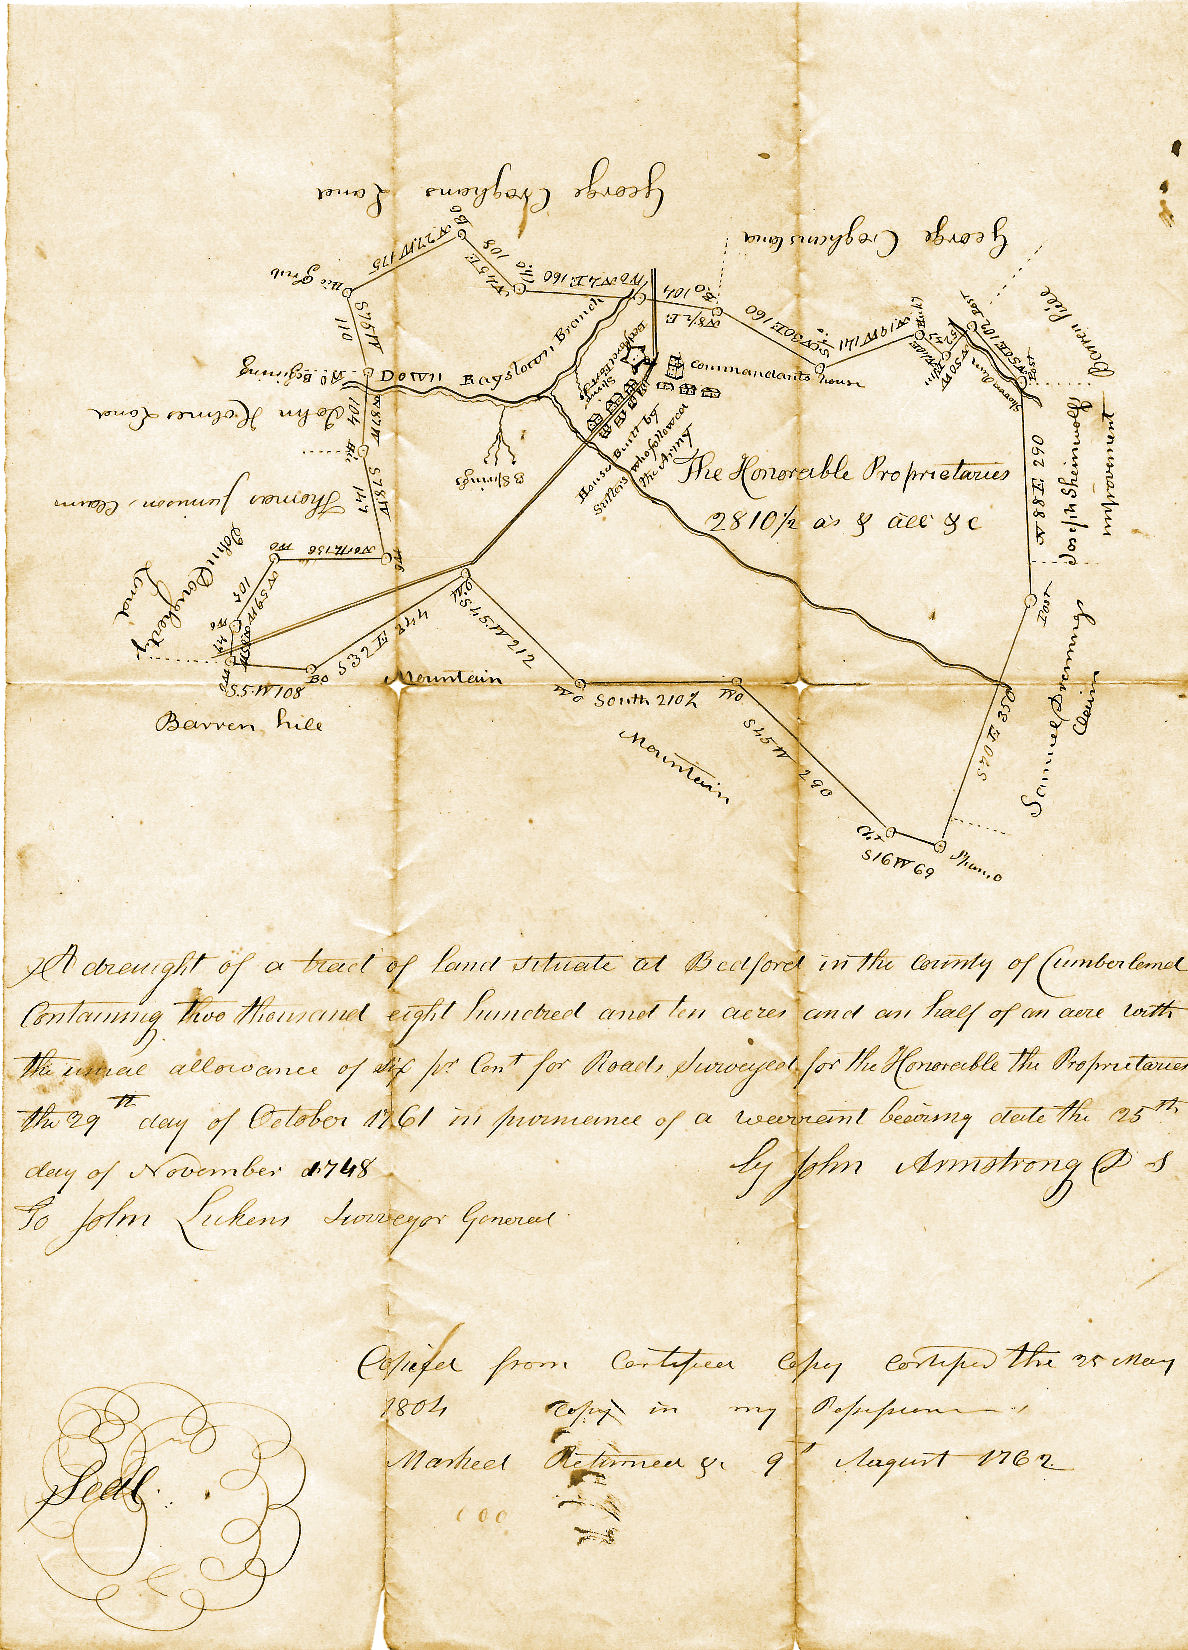 George Croghans Land
George Croghans land
Barren hill
B O
N 27 W 175
N 45 E 108
W O
N 4 E 160
W O
N 8½ E 104
B. O
N 30 E 160
N 19 W 141
Hicky
S 75 W 110
W O Beginning
Down Raystown Branch
Commandants house
John Holmes Land
N 87 W 104
Hic
3 Springs
House Built by
Sutlers who followed
the Army
The Honorable Proprietaries
2810½ as & all &c
N 88 E 260
Joseph Shenniwolf
improvement
S 78 W 147
Thomas Jamison, Claim
North 136
W O
W O
John Dougherty
Land
N 59 W 104
W O
S 5 W 108
B O
S 32 E 344
W. O
S 45 W 212
Mountain
W O
South 210½
W O
Mountain
S 45 W 290
S 16 W 69
S 70 E 352
Post
Samuel Drenning's
Claim
Barren hill
A draught of a tract of land situate at Bedford in the County of Cumberland
Containing two thousand eight hundred and ten acres and an half of an acre with
the usual allowance of six pr Cent for Roads, Surveyed for the Honorable the Proprietaries
the 29th day of October 1761 in pursuance of a warrant bearing date the 25th
day of November 1748
by John Armstrong D S
To John Lukens Surveyor General
Copied from Certified Copy certified the 25 May
1804 copy in my Possession
Marked Returned &c 9 August 1762
Seal.